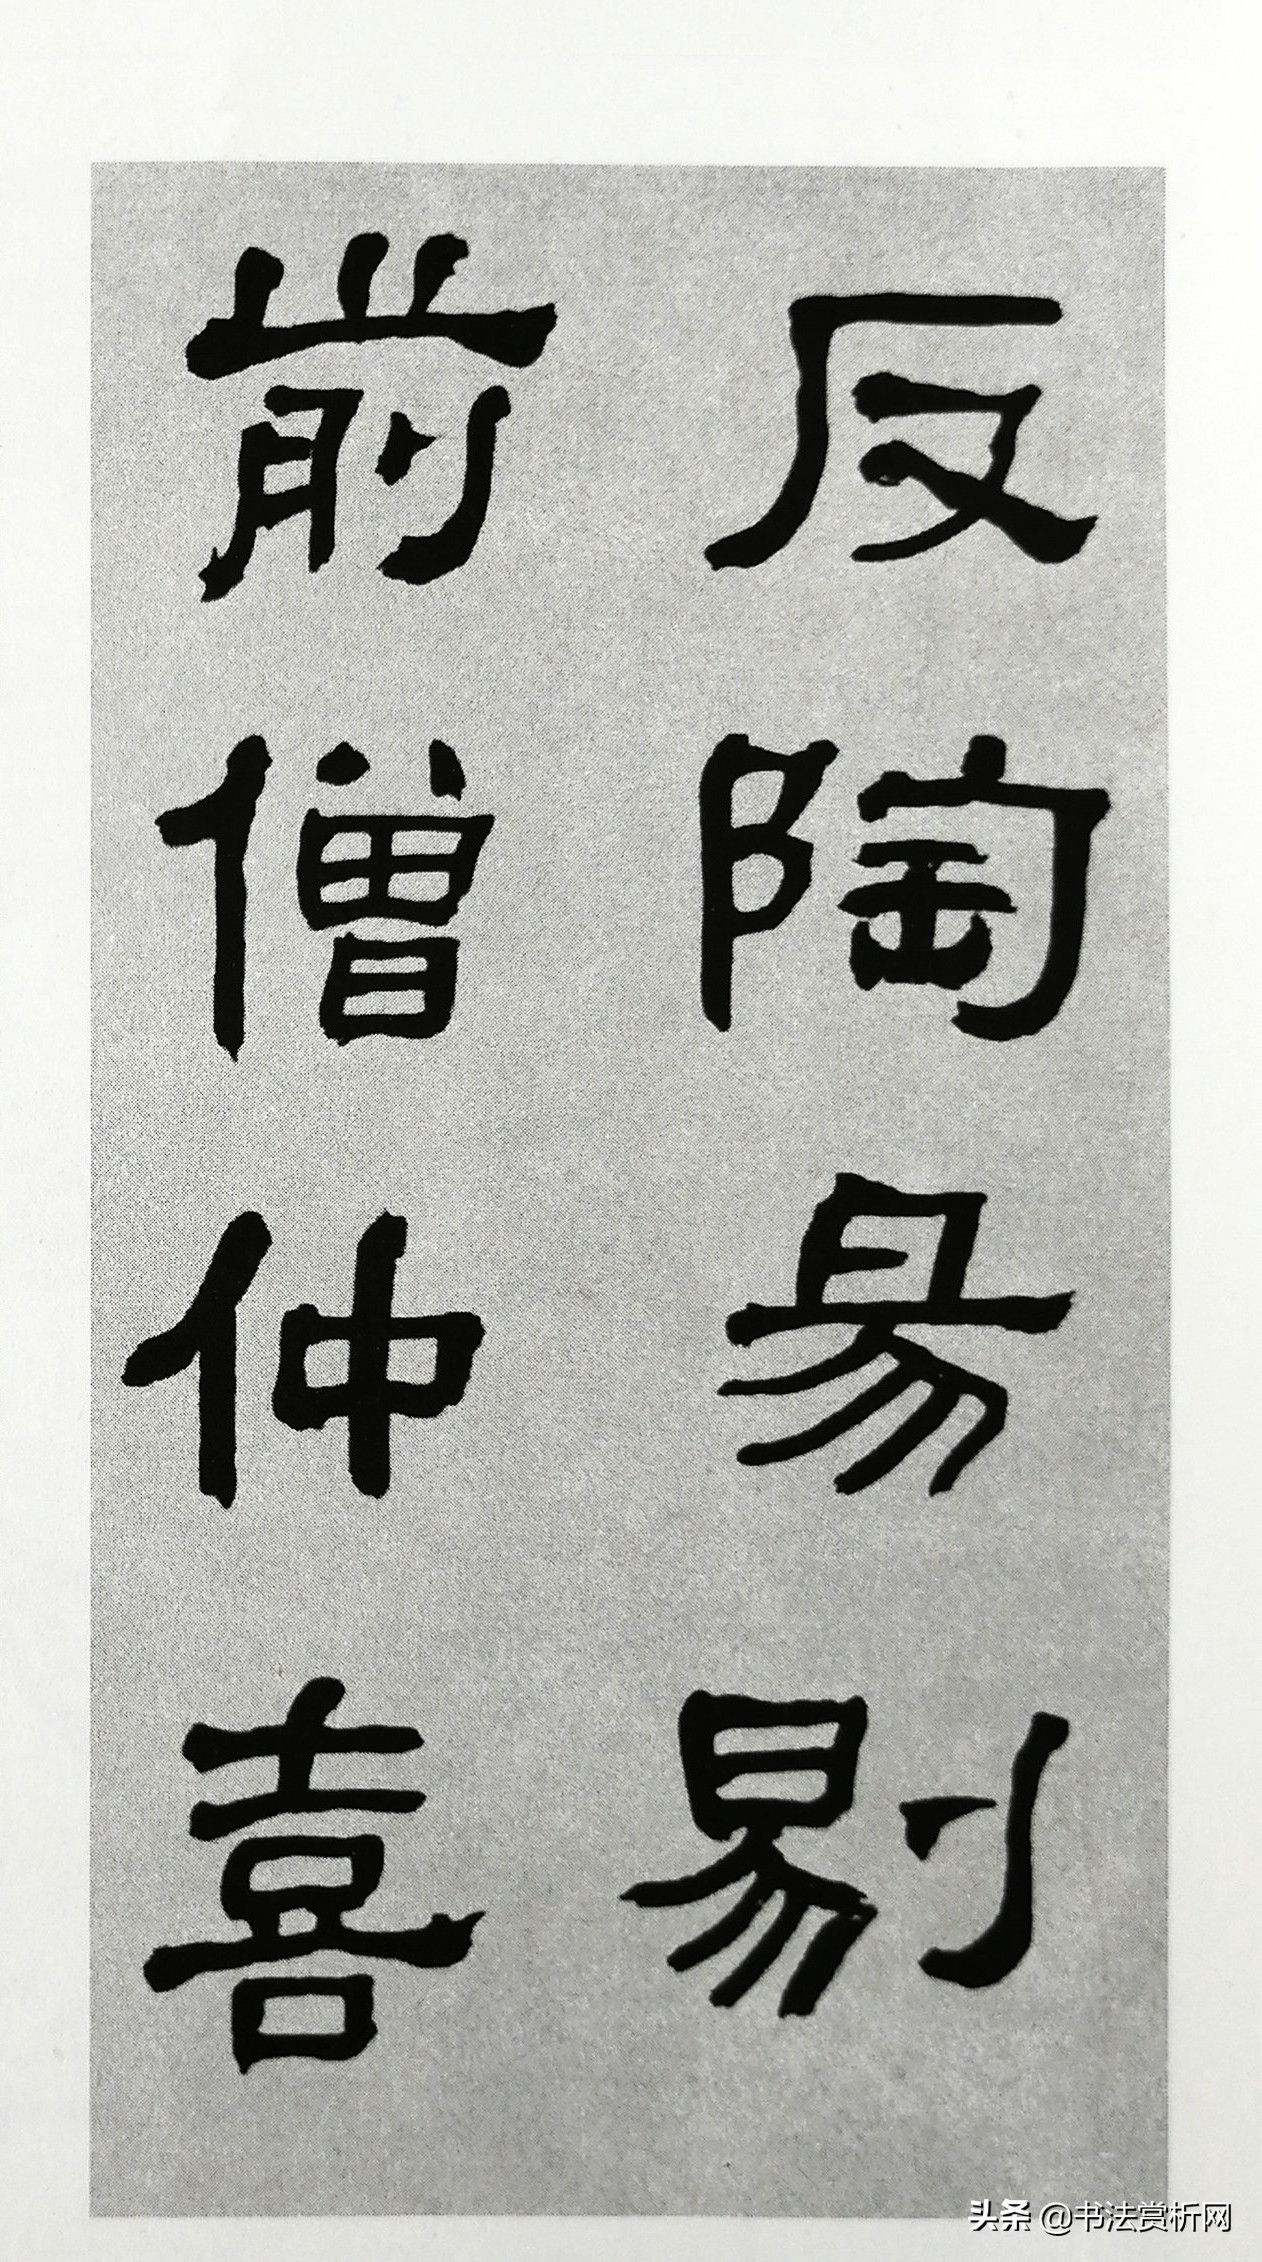 反陶昜剔
前僧仲喜
头条 @书法赏析网